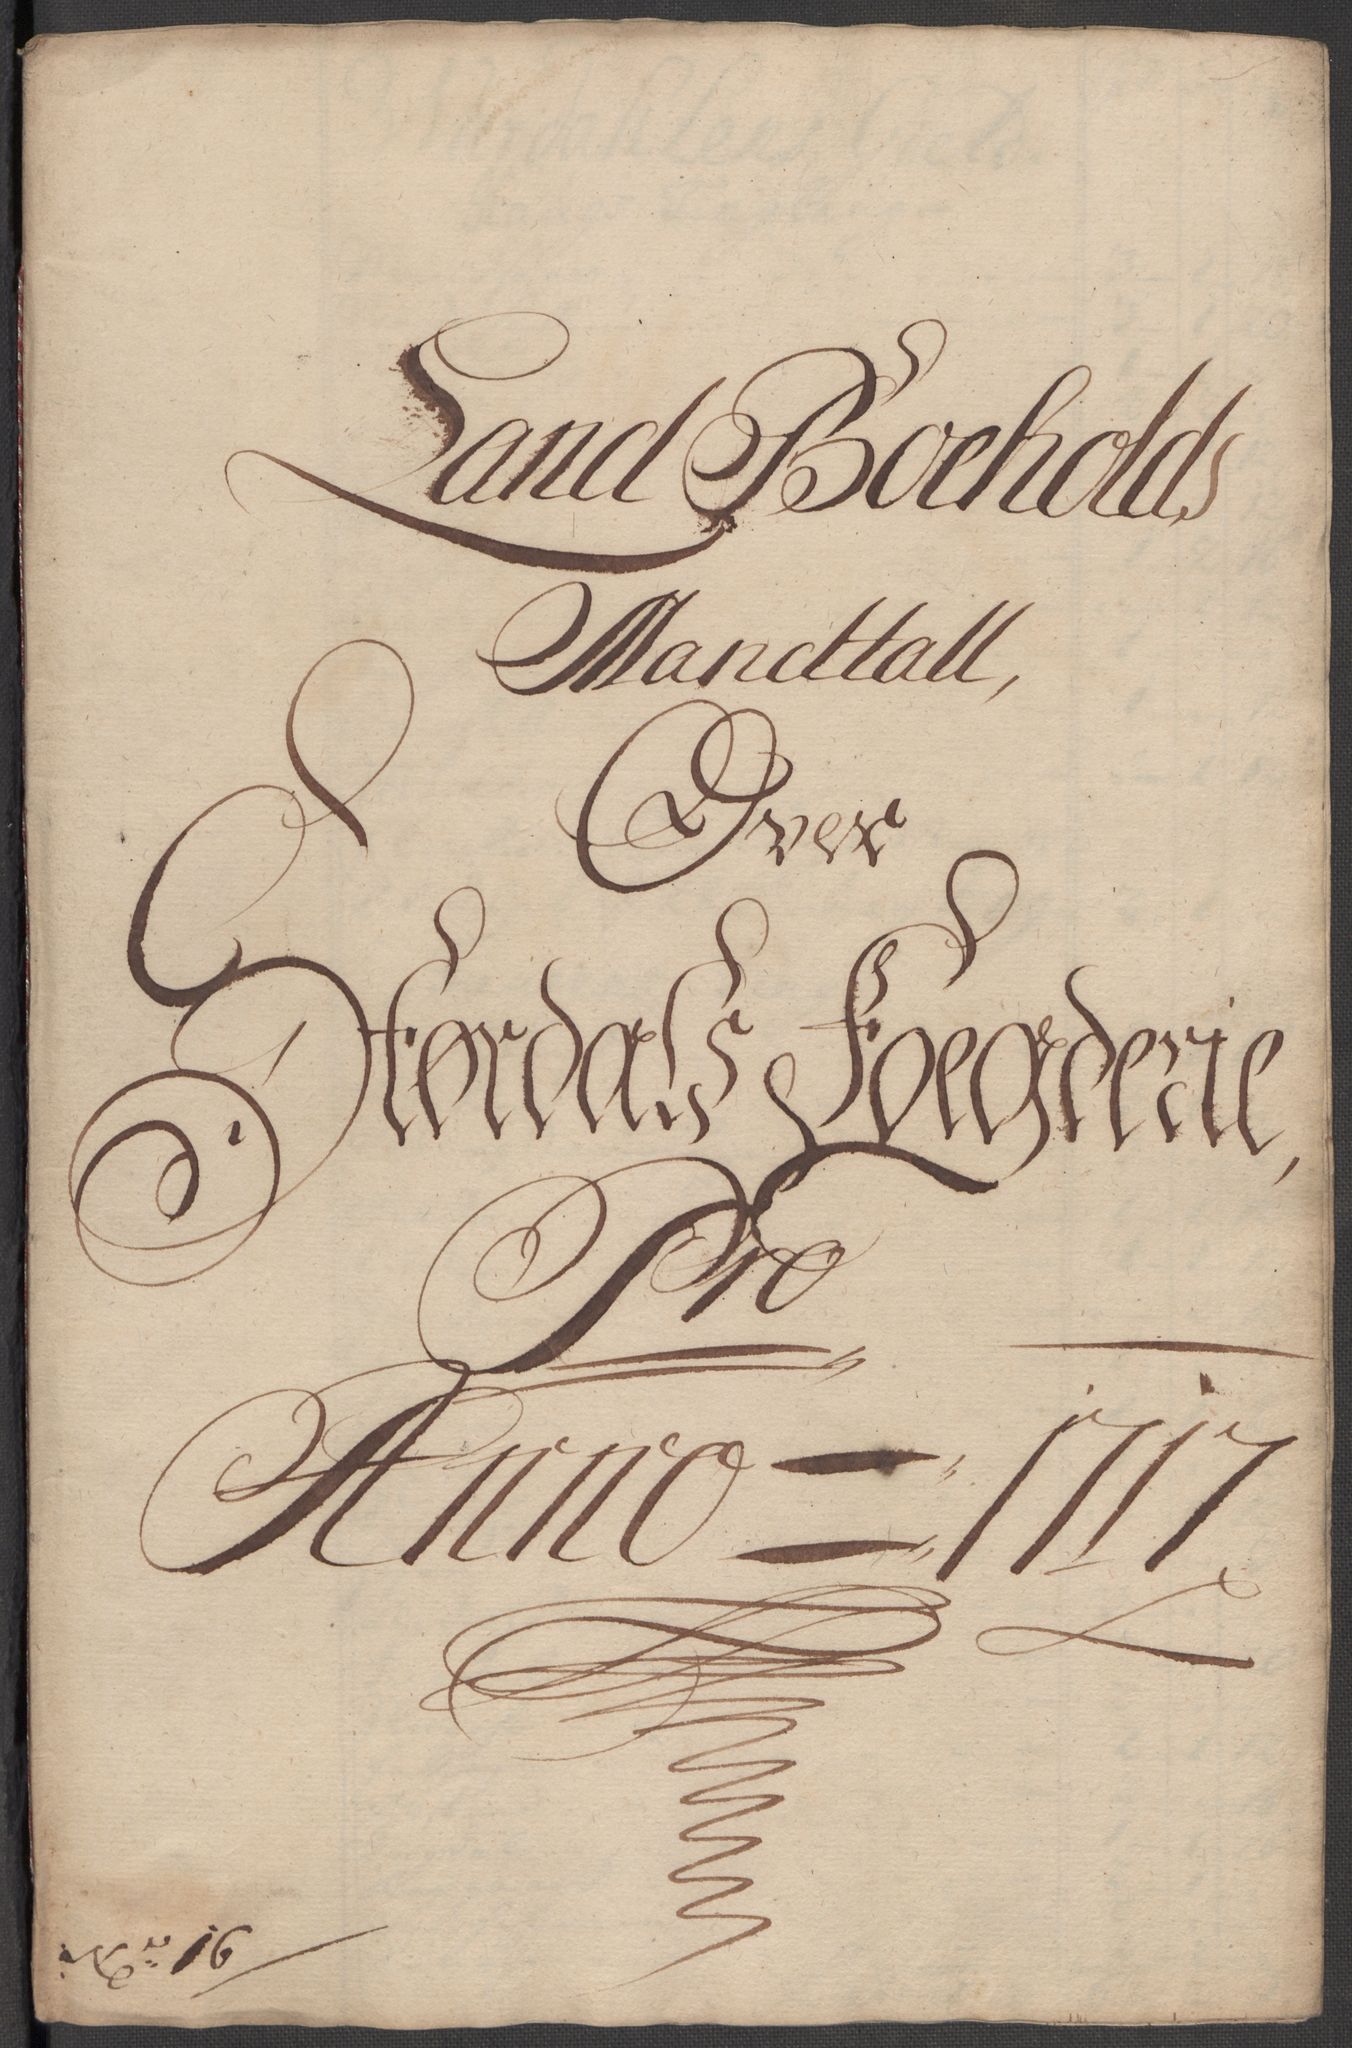 Land Boeholds
Mandtall,
Over
Størdals Foegderie,
Pro
Anno = 1717.
No 16